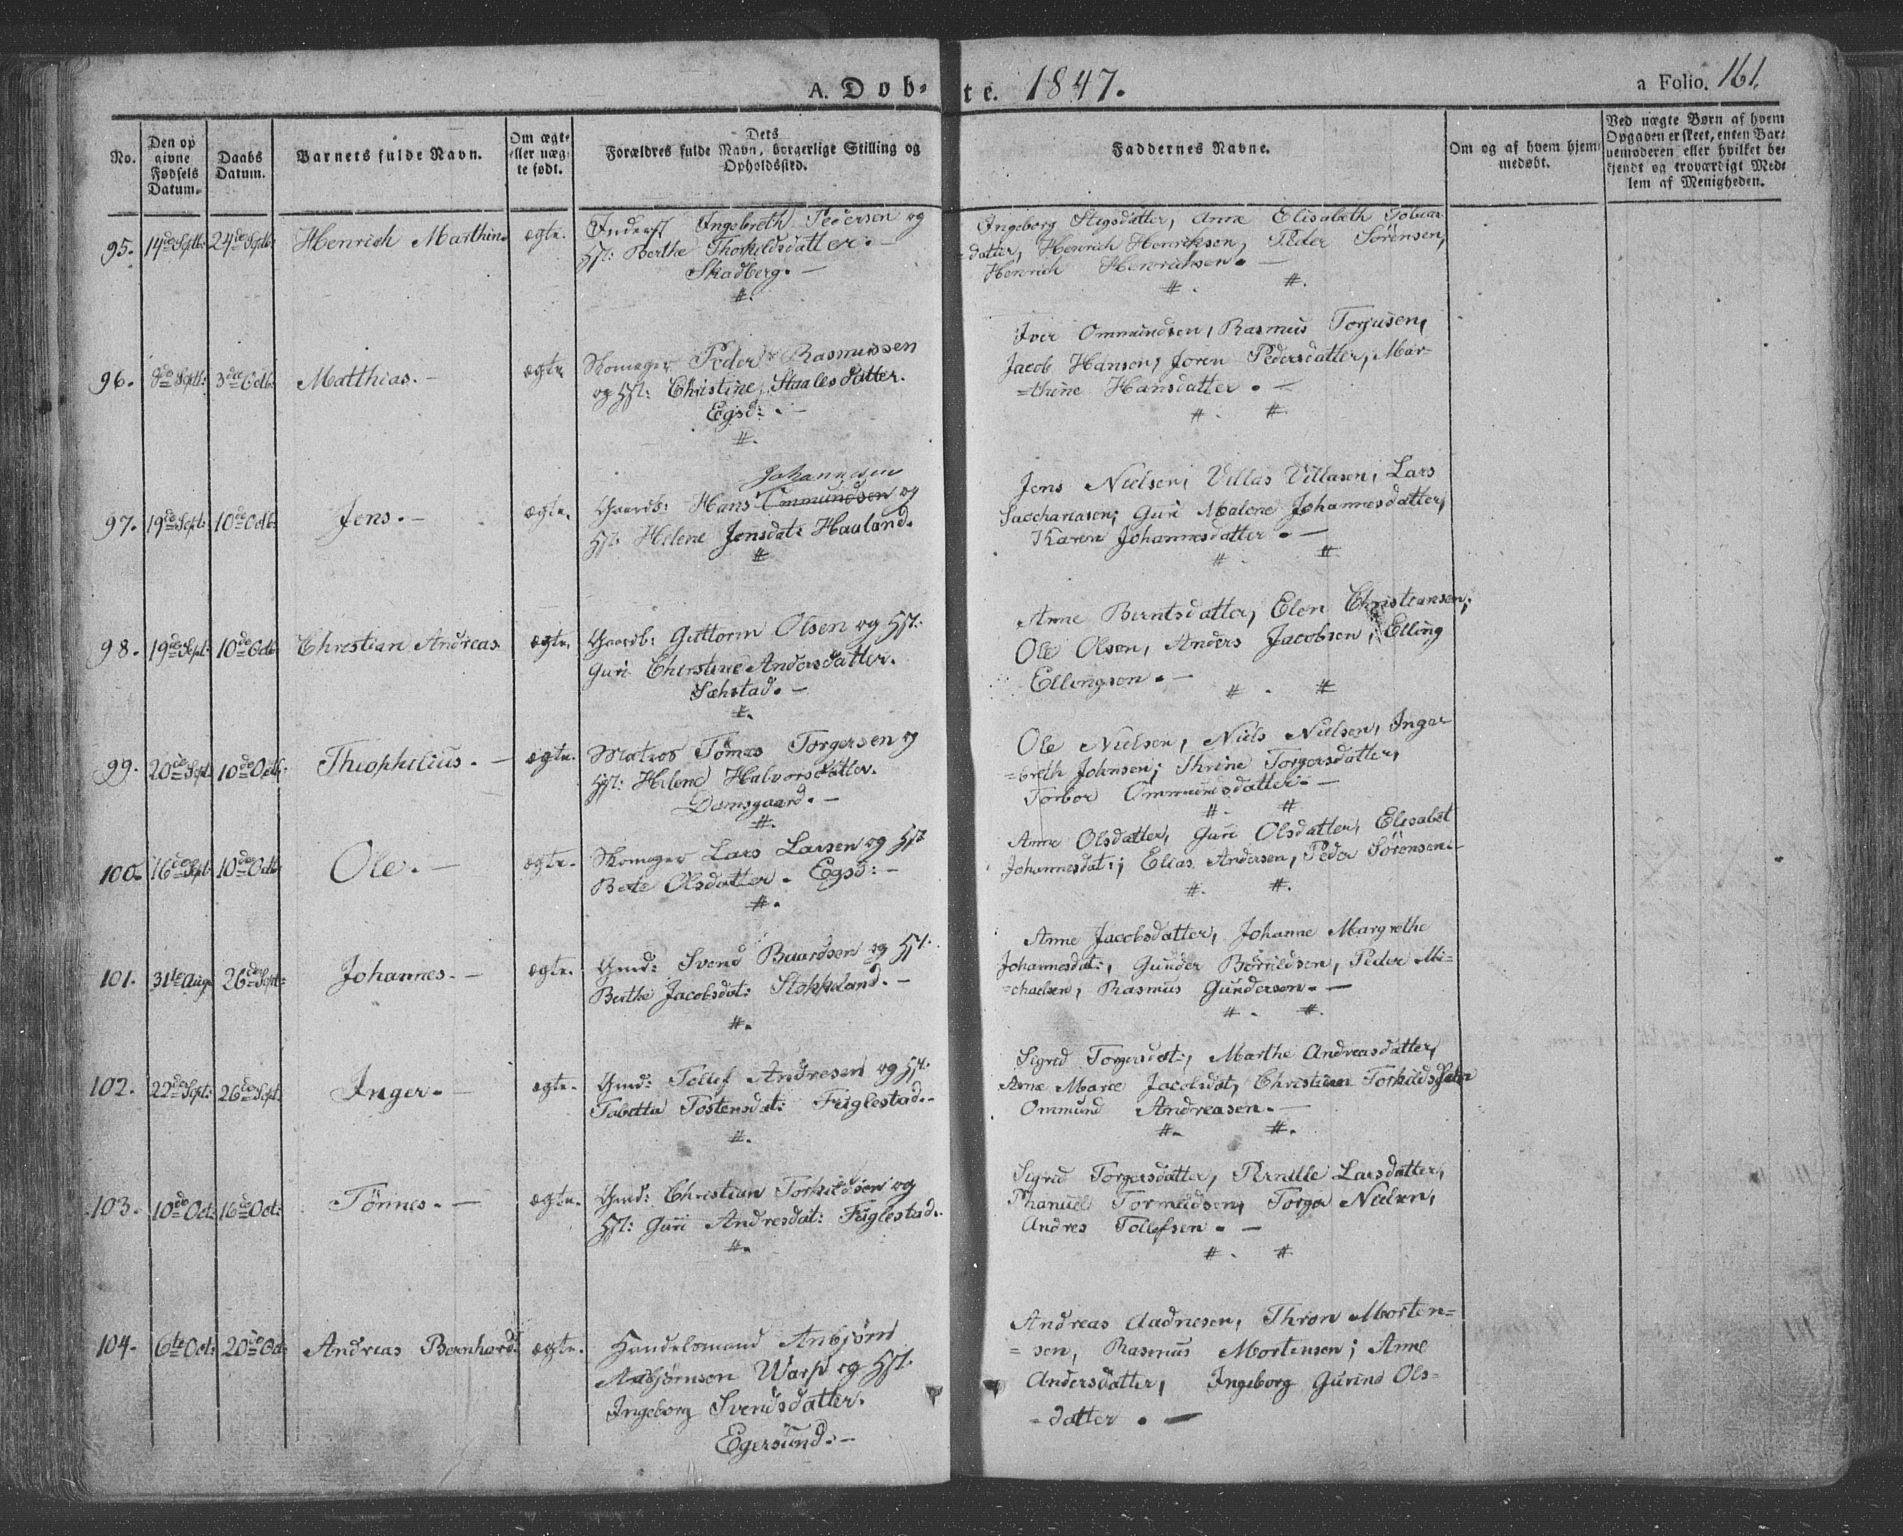 A. Døb-te. 1847. a Folio. 161.
No.
Den op
givne
Fødsels
Datum.
Daabs
Datum.
Barnets fulde Navn.
Om ægte
eller uæg-
te født.
Dets
Forældres fulde Navn, borgerlige Stilling og
Opholdssted.
Faddernes Navne.
Om og af hvem hjem-
medøbt.
Ved uægte Børn af hvem
Opgaven er skeet, enten Bar-
nemoderen eller hvilket be-
kjendt og troværdigt Med-
lem af Menigheden.
95. 14de Septb: 24de Septb: Henrich Marthin. ægte.
Inderst Ingebreth Pedersen og
Hst: Berthe Thorkildsdatter. –
Skadberg. –
#.
Ingeborg Stigsdatter, Anne Elisabeth Tobias
=datter, Henrich Henriksen, Peder Sørensen,
Henrich Henrichsen. –
# #.
96. 8de Septb: 3die Octb: Matthias. – ægte
Skomager Peder Rasmussen
og Hst: Christine Staalesdatter.
Egsd: . –
#.
Iver Ommundsen, Rasmus Torjusen,
Jacob Hansen, Joren Pedersdatter, Mar-
=thine Hansdatter . –
# . #.
97. 19de Sept: 10de Octb: Jens. – ægte.
Johannesen
Gaardb: Hans Ommundsen og
Hst: Helene Jensdat: Haaland.
#
Jens Nielsen, Villas Villasen, Lars
Sacchariasen; Guri Malene Johannesdatter,
Karen Johannesdatter . –
# . #.
98. 19de Sept: 10de Octb: Christian Andreas. ægte.
Gaardb: Guttorm Olsen og Hst:
Guri Christine Andersdatter.
Sæhstad. –
#.
Anne Berntsdatter, Elen Christiansen;
Ole Olsen, Anders Jacobsen, Elling
Ellingsen . –
# . #
99. 20de Sept. 10de Octb: Theophilius. – ægte.
Matros Tønnes Torgersen og
Hst: Helene Halvorsdatter.
Damsgaard. –
#.
Ole Nielsen, Niels Nielsen, Inge-
=breth Johnsen; Thrine Torgersdatter,
Torbor Ommundsdatter. –
# #
100. 16de Sept. 10de Octb Ole. – ægte.
Skomager Lars Larsen og Hst
Berte Olsdatter. Egsd: –
#.
Anne Olsdatter, Guri Olsdatter, Elisabet
Johannesdat:; Elias Andersen, Peder Sørensen. –
#. #.
101. 31te Aug: 26de Sept: Johannes. – ægte.
Gmd: Svend Baardsen og Hst:
Berthe Jacobsdat: Stokkeland. –
#.
Anne Jacobsdatter, Johanne Margrethe
Johannesdat:, Gunder Børildsen, Peder Mi-
=chaelsen, Rasmus Gundersen. –
# . #.
102. 22de Sept: 26de Sept. Inger. – ægte.
Gmd: Tollef Andresen og Hst:
Tabetta Tostensdat: Fuglestad. –
#.
Sigrid Torgersdat:, Marthe Andreasdatter,
Anne Marie Jacobsdat, Christian Torkildsen
Ommund Andreasen. –
#. #.
103. 10de Oct: 16de Oct: Tønnes. – ægte.
Gmd: Christian Torkildsen og
Hst: Guri Andresdat: Fuglestad.
#.
Sigrid Torgersdatter, Pernille Larsdatter,
Phanuel Tormudsen, Torger Nielsen,
Andres Tollefsen . –
# . #
104. 6te Oct: 20de Oct: Andreas Bernhard. ægte.
Handelsmand Anbjørn
Anbjørnsen Warp og Hst:
Ingeborg Svendsdatter.
Egersund. –
Andreas Aadnesen, Thron Morten=
= sen, Rasmus Mortensen; Anne
Andersdatter, Ingeborg Gurine Ols-
=datter . –